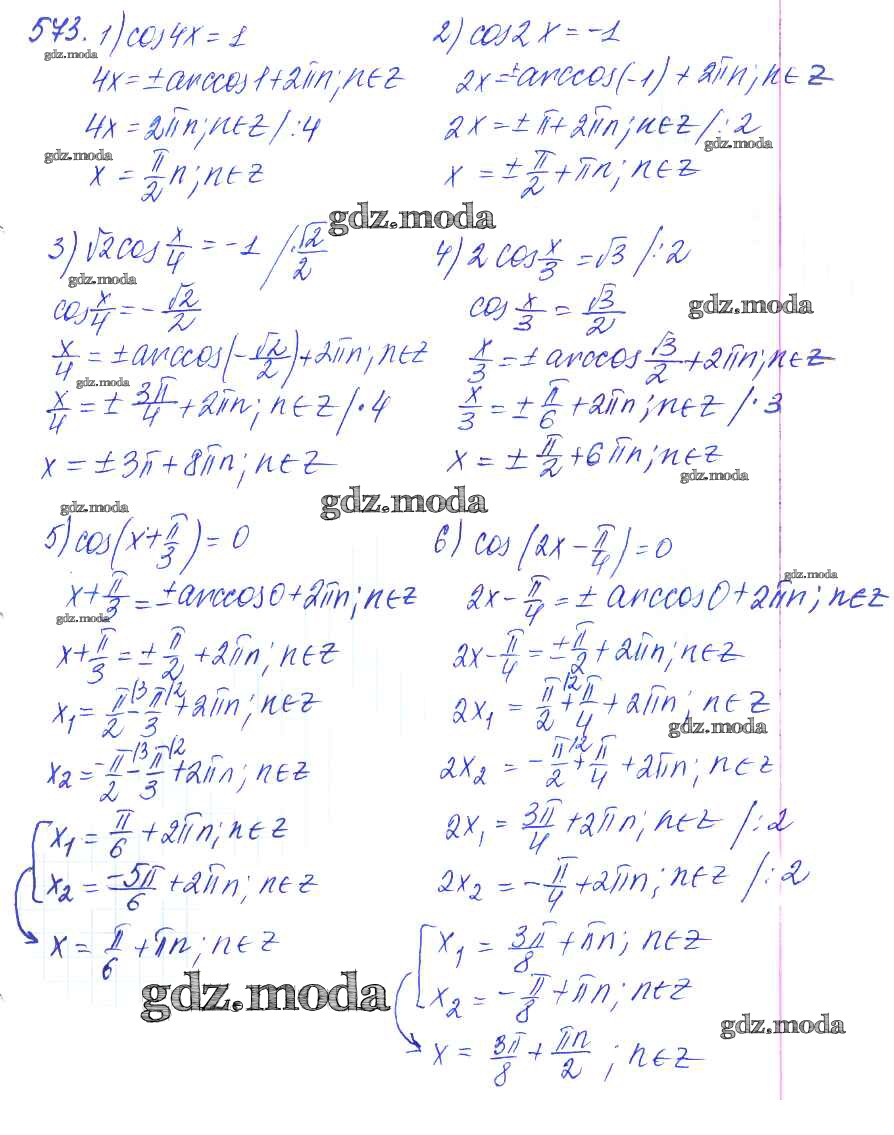 573. 1) cos4x = 1
gdz.moda
4x = ± arccos1 + 2πn; n∈Z
4x = 2πn; n∈Z /:4
gdz.moda
x = π/2 n; n∈Z
2) cos2x = -1
2x = ± arccos(-1) + 2πn; n∈Z
2x = ± π + 2πn; n∈Z /:2
gdz.moda
x = ± π/2 + πn; n∈Z
gdz.moda
3) √2 cos x/4 = -1 /· √2/2
gdz.moda
cos x/4 = - √2/2
x/4 = ± arccos(- √2/2) + 2πn; n∈Z
gdz.moda
x/4 = ± 3π/4 + 2πn; n∈Z /·4
x = ± 3π + 8πn; n∈Z
4) 2 cos x/3 = √3 /:2
gdz.moda
cos x/3 = √3/2
x/3 = ± arccos √3/2 + 2πn; n∈Z
x/3 = ± π/6 + 2πn; n∈Z /·3
x = ± π/2 + 6πn; n∈Z
gdz.moda
gdz.moda
gdz.moda
5) cos(x + π/3) = 0
x + π/3 = ± arccos0 + 2πn; n∈Z
gdz.moda
x + π/3 = ± π/2 + 2πn; n∈Z
x₁ = π/2 |3 - π/3 |2 + 2πn; n∈Z
x₂ = -π/2 |3 - π/3 |2 + 2πn; n∈Z
x₁ = π/6 + 2πn; n∈Z
x₂ = -5π/6 + 2πn; n∈Z
x = π/6 + πn; n∈Z
gdz.moda
6) cos(2x - π/4) = 0
gdz.moda
2x - π/4 = ± arccos0 + 2πn; n∈Z
2x - π/4 = ± π/2 + 2πn; n∈Z
2x₁ = π/2 |2 + π/4 + 2πn; n∈Z
gdz.moda
2x₂ = - π/2 |2 + π/4 + 2πn; n∈Z
2x₁ = 3π/4 + 2πn; n∈Z /:2
2x₂ = - π/4 + 2πn; n∈Z /:2
x₁ = 3π/8 + πn; n∈Z
x₂ = - π/8 + πn; n∈Z
gdz.moda
x = 3π/8 + πn/2 ; n∈Z